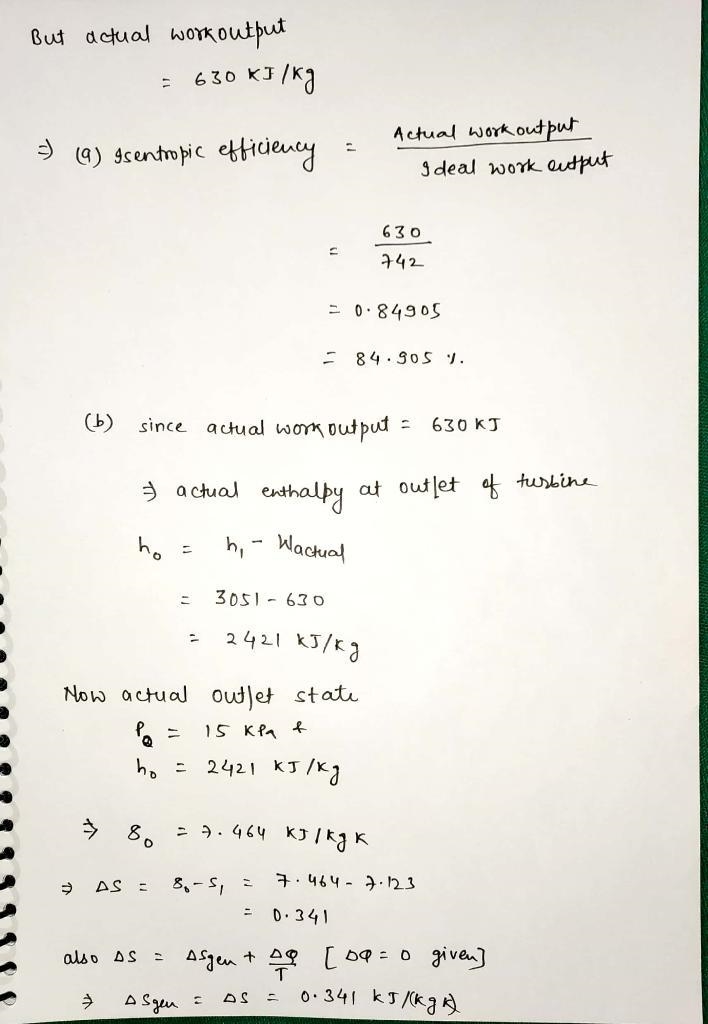 But actual workoutput
= 630 KJ/Kg
⇒ (a) Isentropic efficiency = Actual workoutput / Ideal work output
= 630 / 742
= 0.84905
= 84.905 %.
(b) since actual workoutput = 630 KJ
⇒ actual enthalpy at outlet of turbine
h₀ = h₁ - Wactual
= 3051 - 630
= 2421 KJ/Kg
Now actual outlet state
P₀ = 15 KPa &
h₀ = 2421 KJ/Kg
⇒ S₀ = 7.464 KJ/Kg K
⇒ ΔS = S₀ - S₁ = 7.464 - 7.123
= 0.341
also ΔS = ΔSgen + ΔQ/T [ΔQ = 0 given]
⇒ ΔSgen = ΔS = 0.341 KJ/(Kg K)